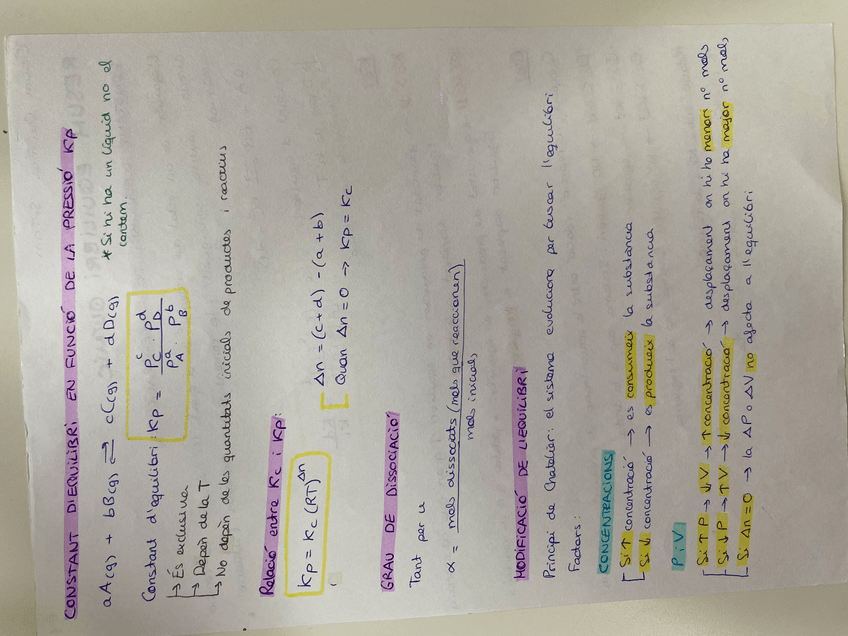 CONSTANT D'EQUILIBRI EN FUNCIÓ DE LA PRESSIÓ Kp
aA(g) + bB(g) ⇄ cC(g) + dD(g)
* Si hi ha un líquid no el
contem.
Constant d'equilibri: Kp = P_C^c · P_D^d / P_A^a · P_B^b
↳ És exclusiva
↳ Depèn de la T
↳ No depèn de les quantitats inicials de productes i reactius
Relació entre Kc i Kp:
Kp = Kc (RT)^Δn
Δn = (c+d) - (a+b)
Quan Δn = 0 → Kp = Kc
GRAU DE DISSOCIACIÓ
Tant per u
α = mols dissociats (mols que reaccionen) / mols inicials
MODIFICACIÓ DE L'EQUILIBRI
Principi de Chatelier: el sistema evoluciona per buscar l'equilibri.
Factors:
CONCENTRACIONS
Si ↑ concentració → es consumeix la substància
Si ↓ concentració → es produeix la substància
P i V
Si ↑ P → ↓ V → ↑ concentració → desplaçament on hi ha menor nº mols
Si ↓ P → ↑ V → ↓ concentració → desplaçament on hi ha major nº mols
Si Δn = 0 → la ΔP o ΔV no afecta a l'equilibri